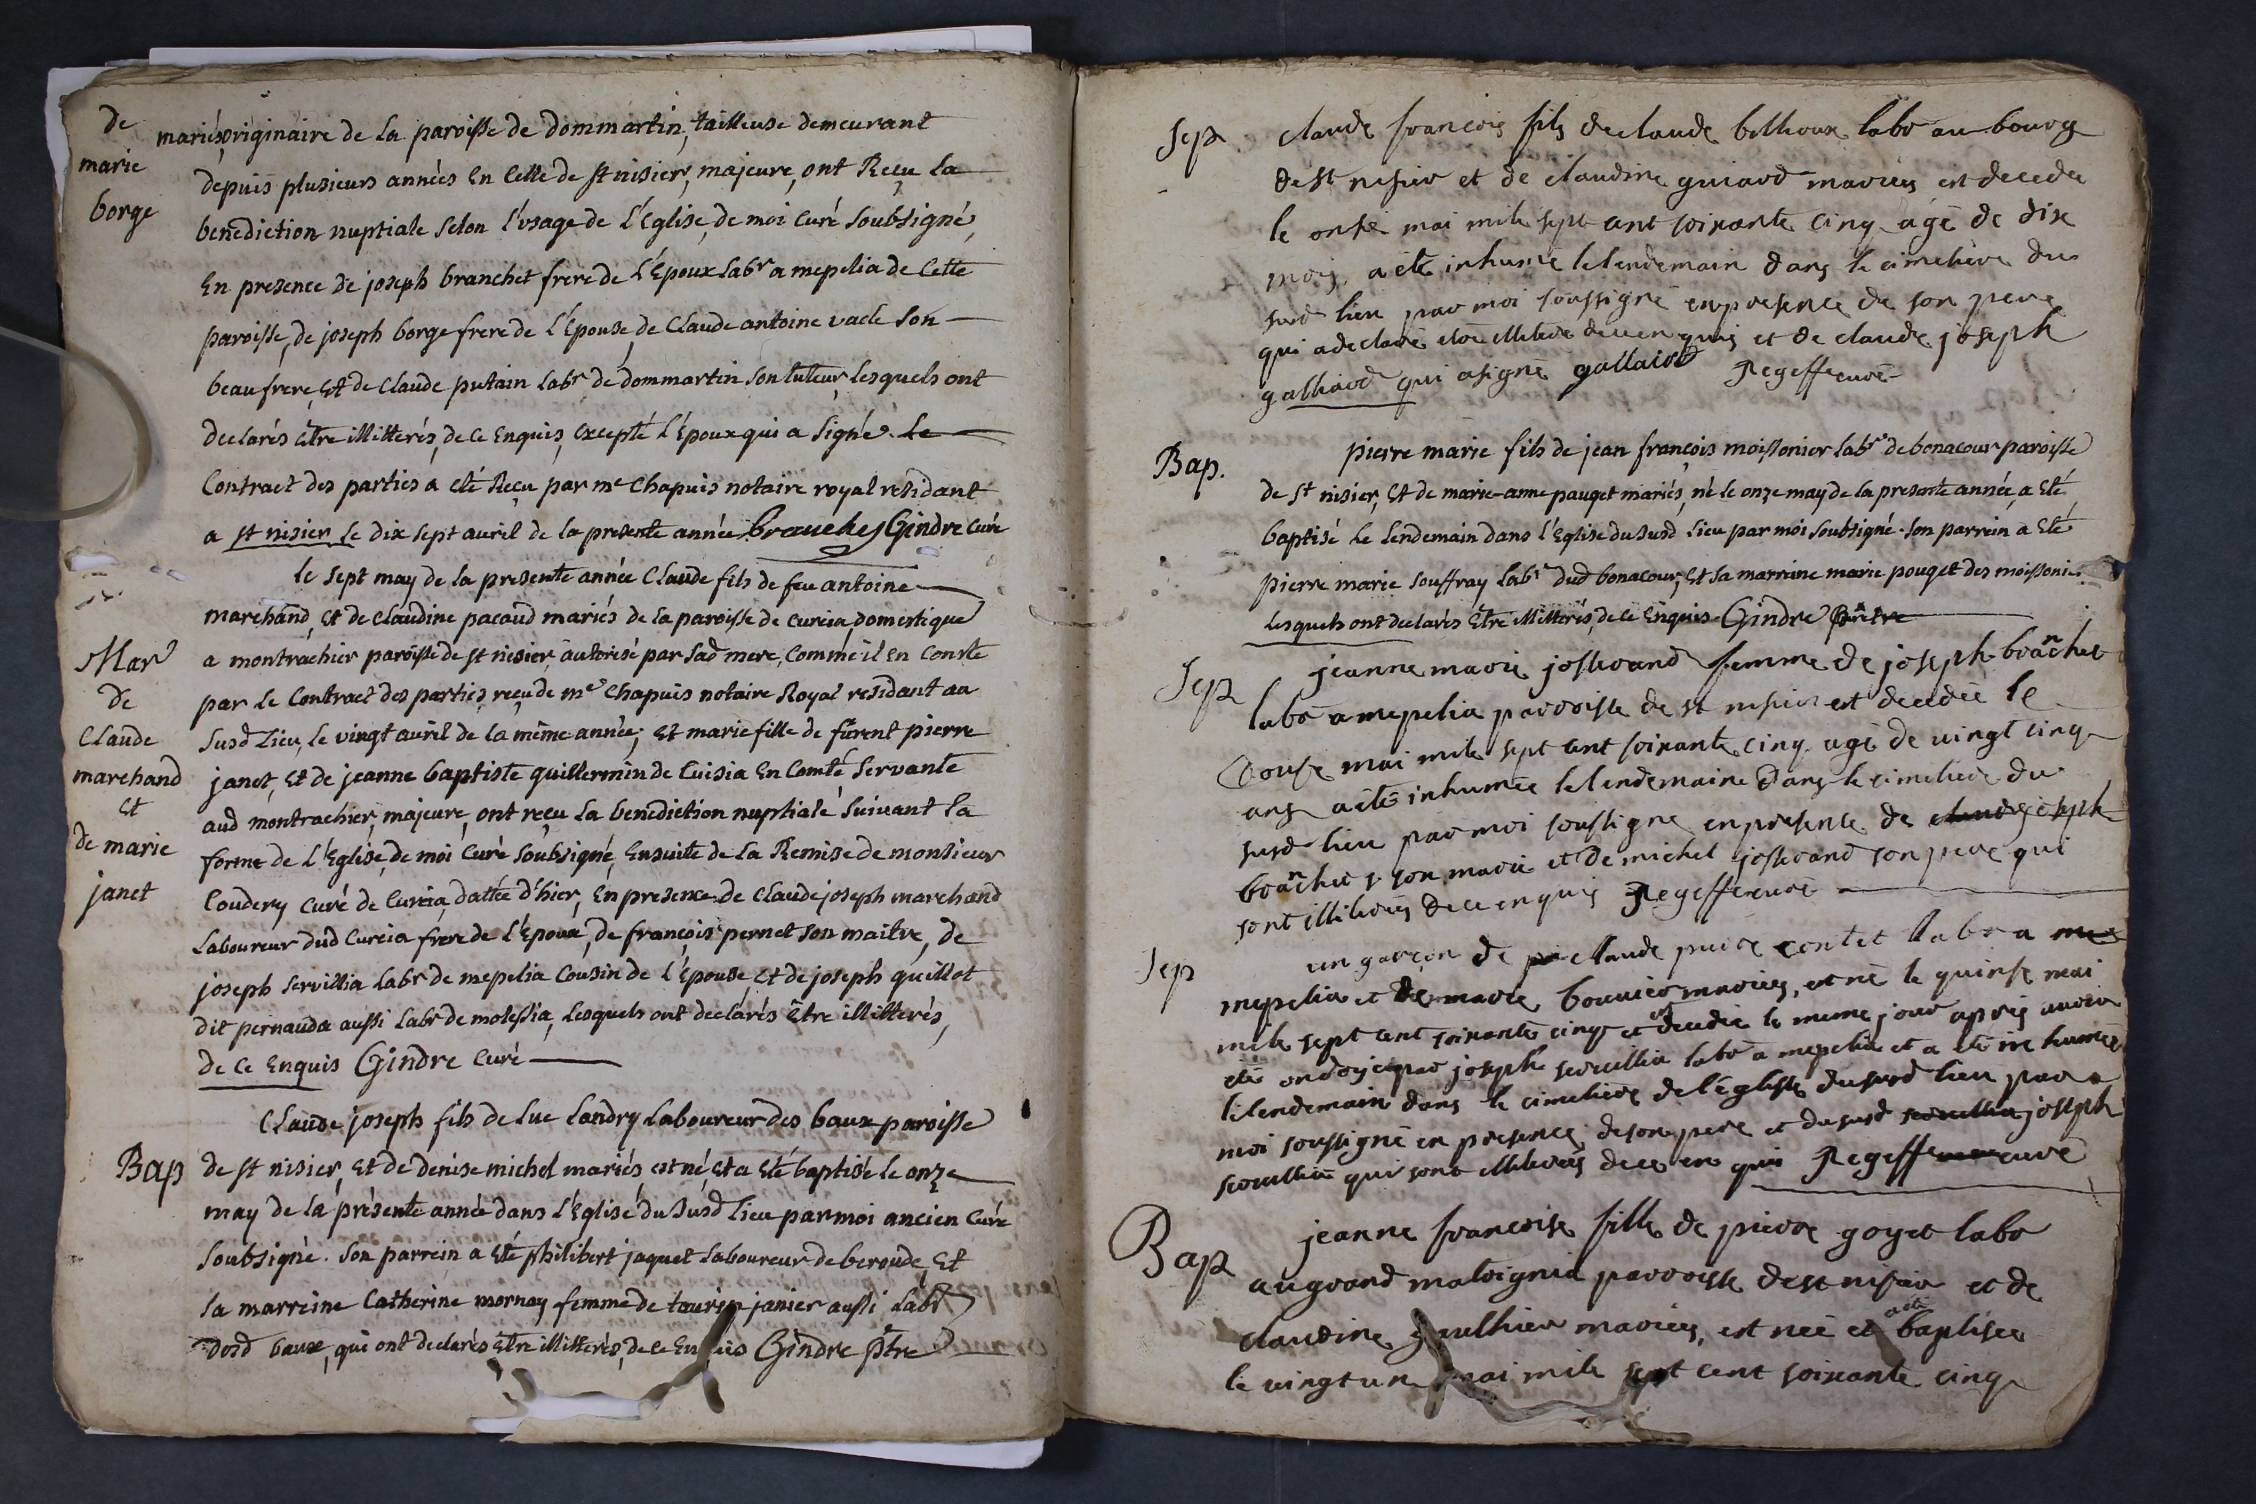 de
marie
borge
mariés, originaire de la paroisse de dommartin, tailleuse demeurant
depuis plusieurs années En Celle de st nisier, majeure, ont Reçu la
benediction nuptiale Selon l'usage de l'Eglise, de moi Curé Soubsigné,
En presence de joseph branchet frere de l'Epoux labr a mepelia de Cette
paroisse, de joseph borge frere de l'Epouse, de Claude antoine vacle Son
beaufrere, Et de Claude putain labr de dommartin Son tuteur, lesquels ont
declarés être illitterés, de Ce Enquis, Excepté l'Epoux qui a Signé. Le
Contract des parties a eté Reçu par me Chapuis notaire royal residant
a st nisier le dix sept avril de la presente année branchet Gindre Curé
le sept may de la presente année Claude fils de feu antoine
Mar
de
Claude
marchand
et
de marie
janet
marchand, Et de Claudine pacaud mariés de la paroisse de Curcia, domestique
a montrachier paroisse de st nisier, autorisé par Sad mere, Comme il En Conste
par le Contract des parties, reçu de me Chapuis notaire Royal residant au
Susd Lieu, le vingt avril de la même année; Et marie fille de fûrent pierre
janet, Et de jeanne baptiste guillermin de Cuisia En Comté Servante
aud montrachier, majeure, ont reçu la benediction nuptiale Suivant la
forme de l'Eglise, de moi Curé Soubsigné, Ensuite de la Remise de monsieur
Coudery Curé de Curcia, dattée d'hier, En presence de Claude joseph marchand
Laboureur dud Curcia frere de l'Epoux, de françois pernet son maitre, de
joseph Servillia labr de mepelia Cousin de l'Epouse, et de joseph guillot
dit pernauda aussi labr de molessia, Lesquels ont declarés Être illitterés,
de Ce Enquis Gindre Curé
Claude joseph fils de Luc Landry Laboureur des baux paroisse
Bap
de st nisier, Et de denise michel mariés, est né, Et a Eté baptisé le onze
may de la présente année dans l'Eglise du Susd Lieu par moi ancien Curé
Soubsigné. Son parrein a Eté philibert jaquet Laboureur de beroude, Et
Sa marreine Catherine mornay femme de janier aussi labr
desd baux, qui ont declarés Être illitterés, de Ce Enquis Gindre ptre
Sep
claude francois fils de claude billioux labo au bourg
de st nisier et de claudine guiard mariés est decedez
le onse mai mile sept cent soixante cinq agé de dix
mois, a été inhumé le lendemain dans le cimetière du
susd lieu par moi soussigné en presence de son pere
qui a declaré etre illiteré de ce en quis et de claude joseph
galliard qui a signé gallaird Regeffe curé
Bap.
pierre marie fils de jean françois moissonier labr de bonacour paroisse
de st nisier, Et de marie-anne pauget mariés, né le onze may de la presente année, a Eté
baptisé le lendemain dans l'Eglise du Susd Lieu par moi Soubsigné. Son parrein a Eté
pierre marie souffray labr dud bonacour, Et sa marreine marie pouget des moissonier
lesquels ont declarés Etre illitterés, de Ce Enquis Gindre prêtre
Sep
jeanne marie josserand femme de joseph branchet
labo a mepelia parroisse de st nisier est decedée le
douse mai mile sept cent soixante cinq agé de vingt cinq
ans a été inhumée le lendemaine dans le cimetiere du
susd lieu par moi soussigne en presence de claude joseph
branchet son marie et de michel josserand son pere qui
sont illiterés de ce en quis Regeffe curé
Sep
un garçon de claude pierre contet labo a
mepelia et de marie bouvier mariés, est né le quinse mai
mile sept cent soixante cinq et est decedée le meme jour après avoir
eté ondoyé par joseph servillia labo a mepelia et a eté inhumée
le lendemain dans le cimetiere de l'églisse du susd lieu par
moi soussigné en presence de son pere et du susd servillia joseph
servillia qui sont illiterés de ce en quis Regeffe curé
Bap
jeanne francoise fille de pierre goyet labo
au grand malvignia parroisse de st nisier et de
claudine gaulhier mariés, est neé et a eté baptisée
le vingt un mai mile sept cent soixante cinq